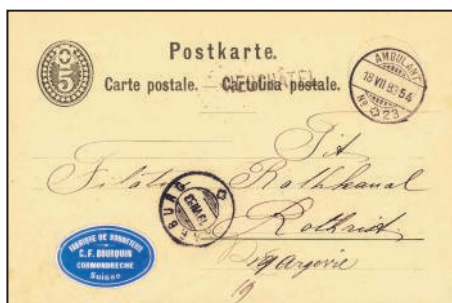 5
Postkarte.
Carte postale. Cartolina postale.
NEUCHATEL
AMBULANT
18 VII 83 54
No 23
Tit
Filature Rothkanal
Rothrist
Argovie
BURG
FABRIQUE DE BONNETERIE
C. F. BOURQUIN
CORMONDRECHE
Suisse